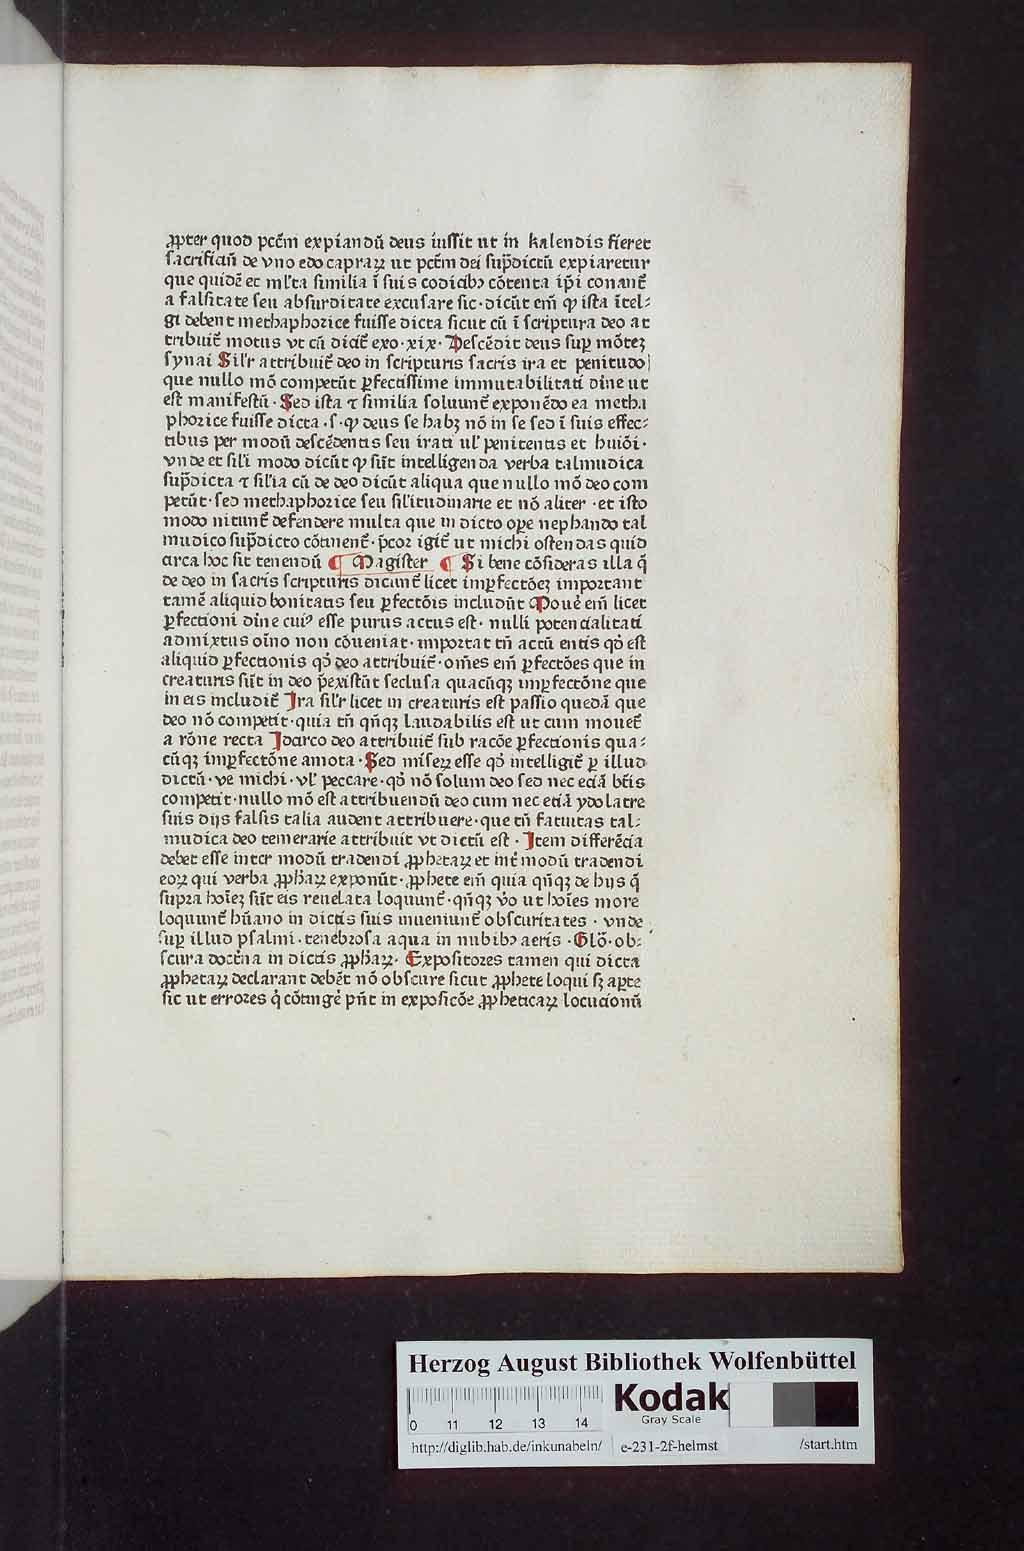 ꝓpter quod pctm̄ expiandū deus iussit ut in kalendis fieret
sacrificiū de vno edo capraꝝ ut pctm̄ dei sup̄dictū expiaretur
que quidē et ml'ta similia ī suis codicibꝰ cōtenta ip̄i conant̄
a falsitate seu absurditate excusare sic · dicūt em̄ ꝙ ista ītel⸗
gi debent methaphorice fuisse dicta sicut cū ī scriptura deo at
tribuit̄ motus vt cū dicit̄ exo · xix · Descēdit deus sup̄ mōteꝫ
synai Sil'r attribuit̄ deo in scripturis sacris ira et penitudo
que nullo mō competūt ꝑfectissime immutabilitati diīne ut
est manifestū · Sed ista ⁊ similia soluunt̄ exponēdo ea metha
phorice fuisse dicta · s · ꝙ deus se habꝫ nō in se sed ī suis effec⸗
tibus per modū descēdentis seu irati ul' penitentis et huiōi ·
vnde et sil'i modo dicūt ꝙ sūt intelligenda verba talmudica
sup̄dicta ⁊ sil'ia cū de deo dicūt aliqua que nullo mō deo com
petūt · sed methaphorice seu sil'itudinarie et nō aliter · et isto
modo nitunt̄ defendere multa que in dicto oꝑe nephando tal
mudico sup̄dicto cōtinent̄ · p̄cor igit̄ ut michi ostendas quid
circa hoc sit tenendū ¶ Magister ¶ Si bene cōsideras illa q̄
de deo in sacris scripturis dicunt̄ licet imꝑfectōeꝫ important
tamē aliquid bonitatis seu ꝑfectōis includūt Mouē em̄ licet
ꝑfectioni diīne cuiꝰ esse purus actus est · nulli potencialitati
admixtus oīno non cōueniat · importat tn̄ actū entis qd̄ est
aliquid ꝑfectionis qd̄ deo attribuit̄ · om̄es em̄ ꝑfectōes que in
creaturis sūt in deo p̄existūt seclusa quacūqꝫ imꝑfectōne que
in eis includit̄ Ira sil'r licet in creaturis est passio quedā que
deo nō competit · quia tn̄ qn̄qꝫ laudabilis est ut cum mouet̄
a rōne recta Idcirco deo attribuit̄ sub racōe ꝑfectionis qua⸗
cūqꝫ imꝑfectōne amota · Sed miseꝝ esse qd̄ intelligit̄ ꝑ illud
dictū · ve michi · vl' peccare · qd̄ nō solum deo sed nec eciā btīs
competit · nullo mō est attribuendū deo cum nec etiā ydolatre
suis dijs falsis talia audent attribuere · que tn̄ fatuitas tal⸗
mudica deo temerarie attribuit vt dictū est · Item differēcia
debet esse inter modū tradendi ꝓphetaꝝ et int̄ modū tradendi
eoꝝ qui verba ꝓph̄aꝝ exponūt · ꝓphete em̄ quia qn̄qꝫ de hijs q̄
supra hoīeꝫ sūt eis reuelata loquunt̄ · qn̄qꝫ v̄o ut hoīes more
loquunt̄ hūano in dictis suis inueniunt̄ obscuritates · vnde
sup̄ illud psalmi · tenebrosa aqua in nubibꝰ aeris · Glo͞ · ob⸗
scura doct̄na in dictis ꝓph̄aꝝ · Expositores tamen qui dicta
ꝓphetaꝝ declarant debēt nō obscure sicut ꝓphete loqui sꝫ aꝑte
sic ut errores q̄ cōtingē pn̄t in exposicōe ꝓpheticaꝝ locucionū
Herzog August Bibliothek Wolfenbüttel
0 11 12 13 14
Kodak
Gray Scale
http://diglib.hab.de/inkunabeln/ e-231-2f-helmst /start.htm